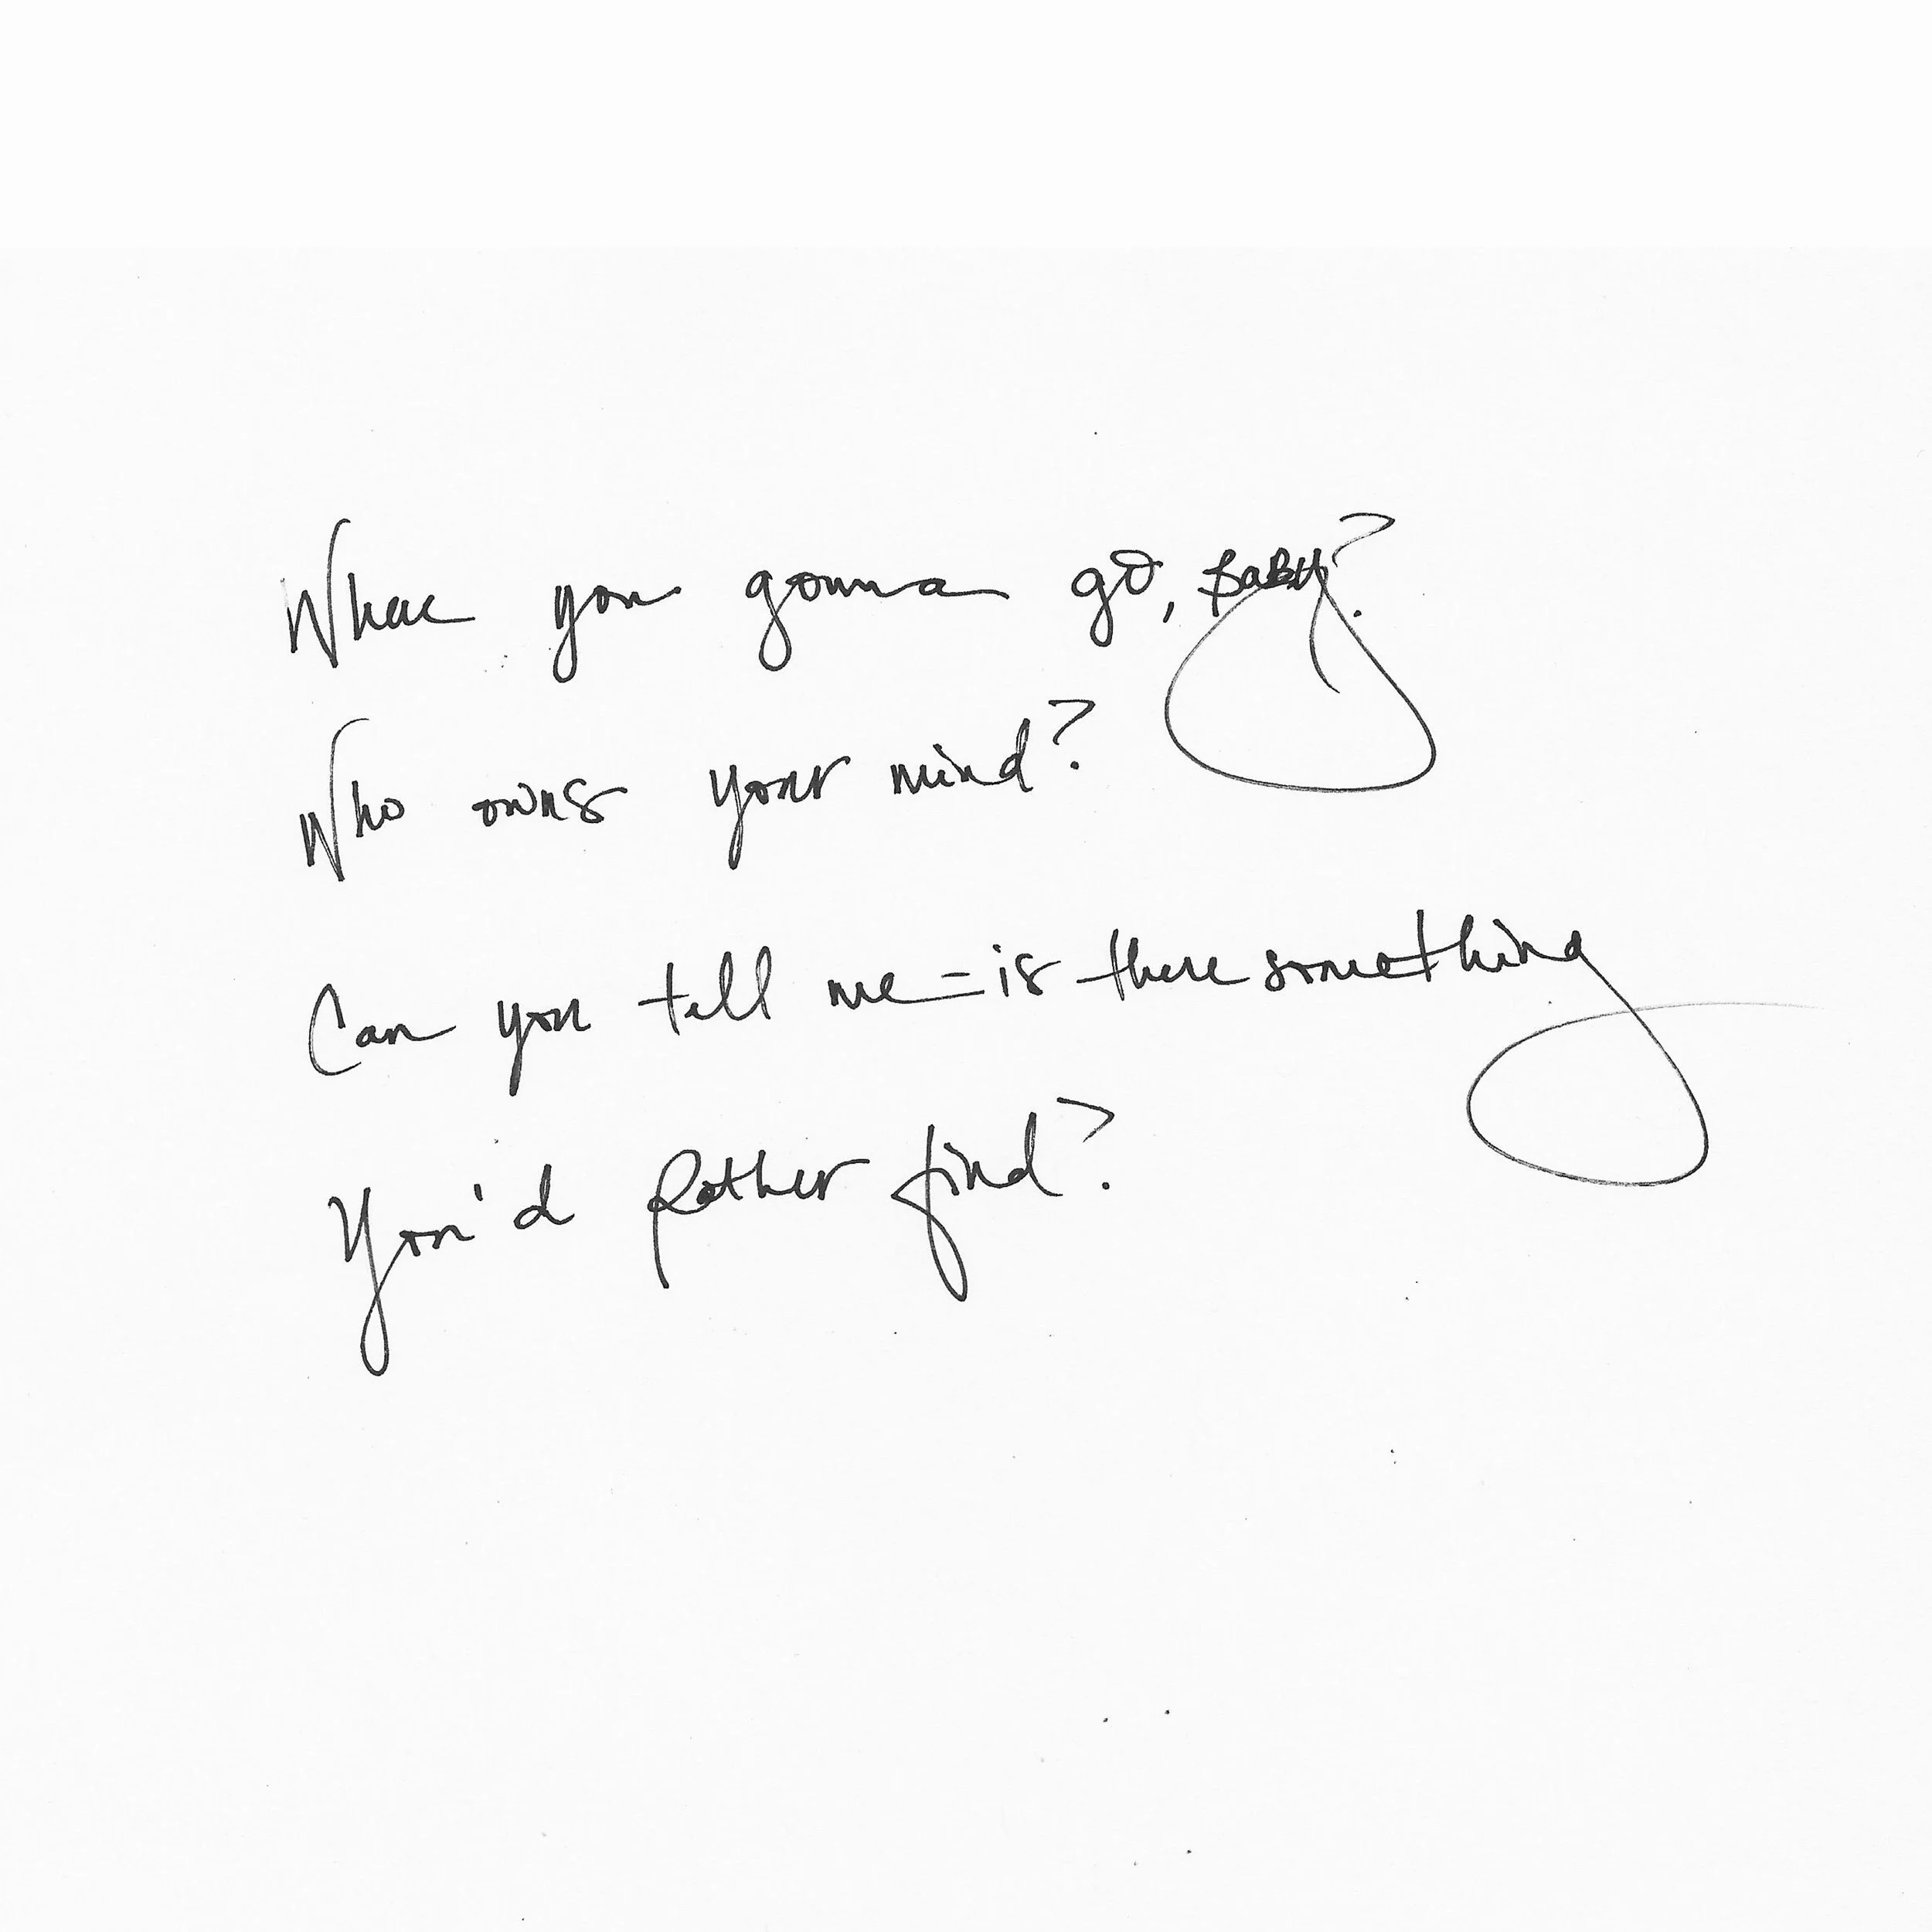 Where you gonna go, BABY?
Who owns your mind?
Can you tell me - is there something
You'd Rather find?